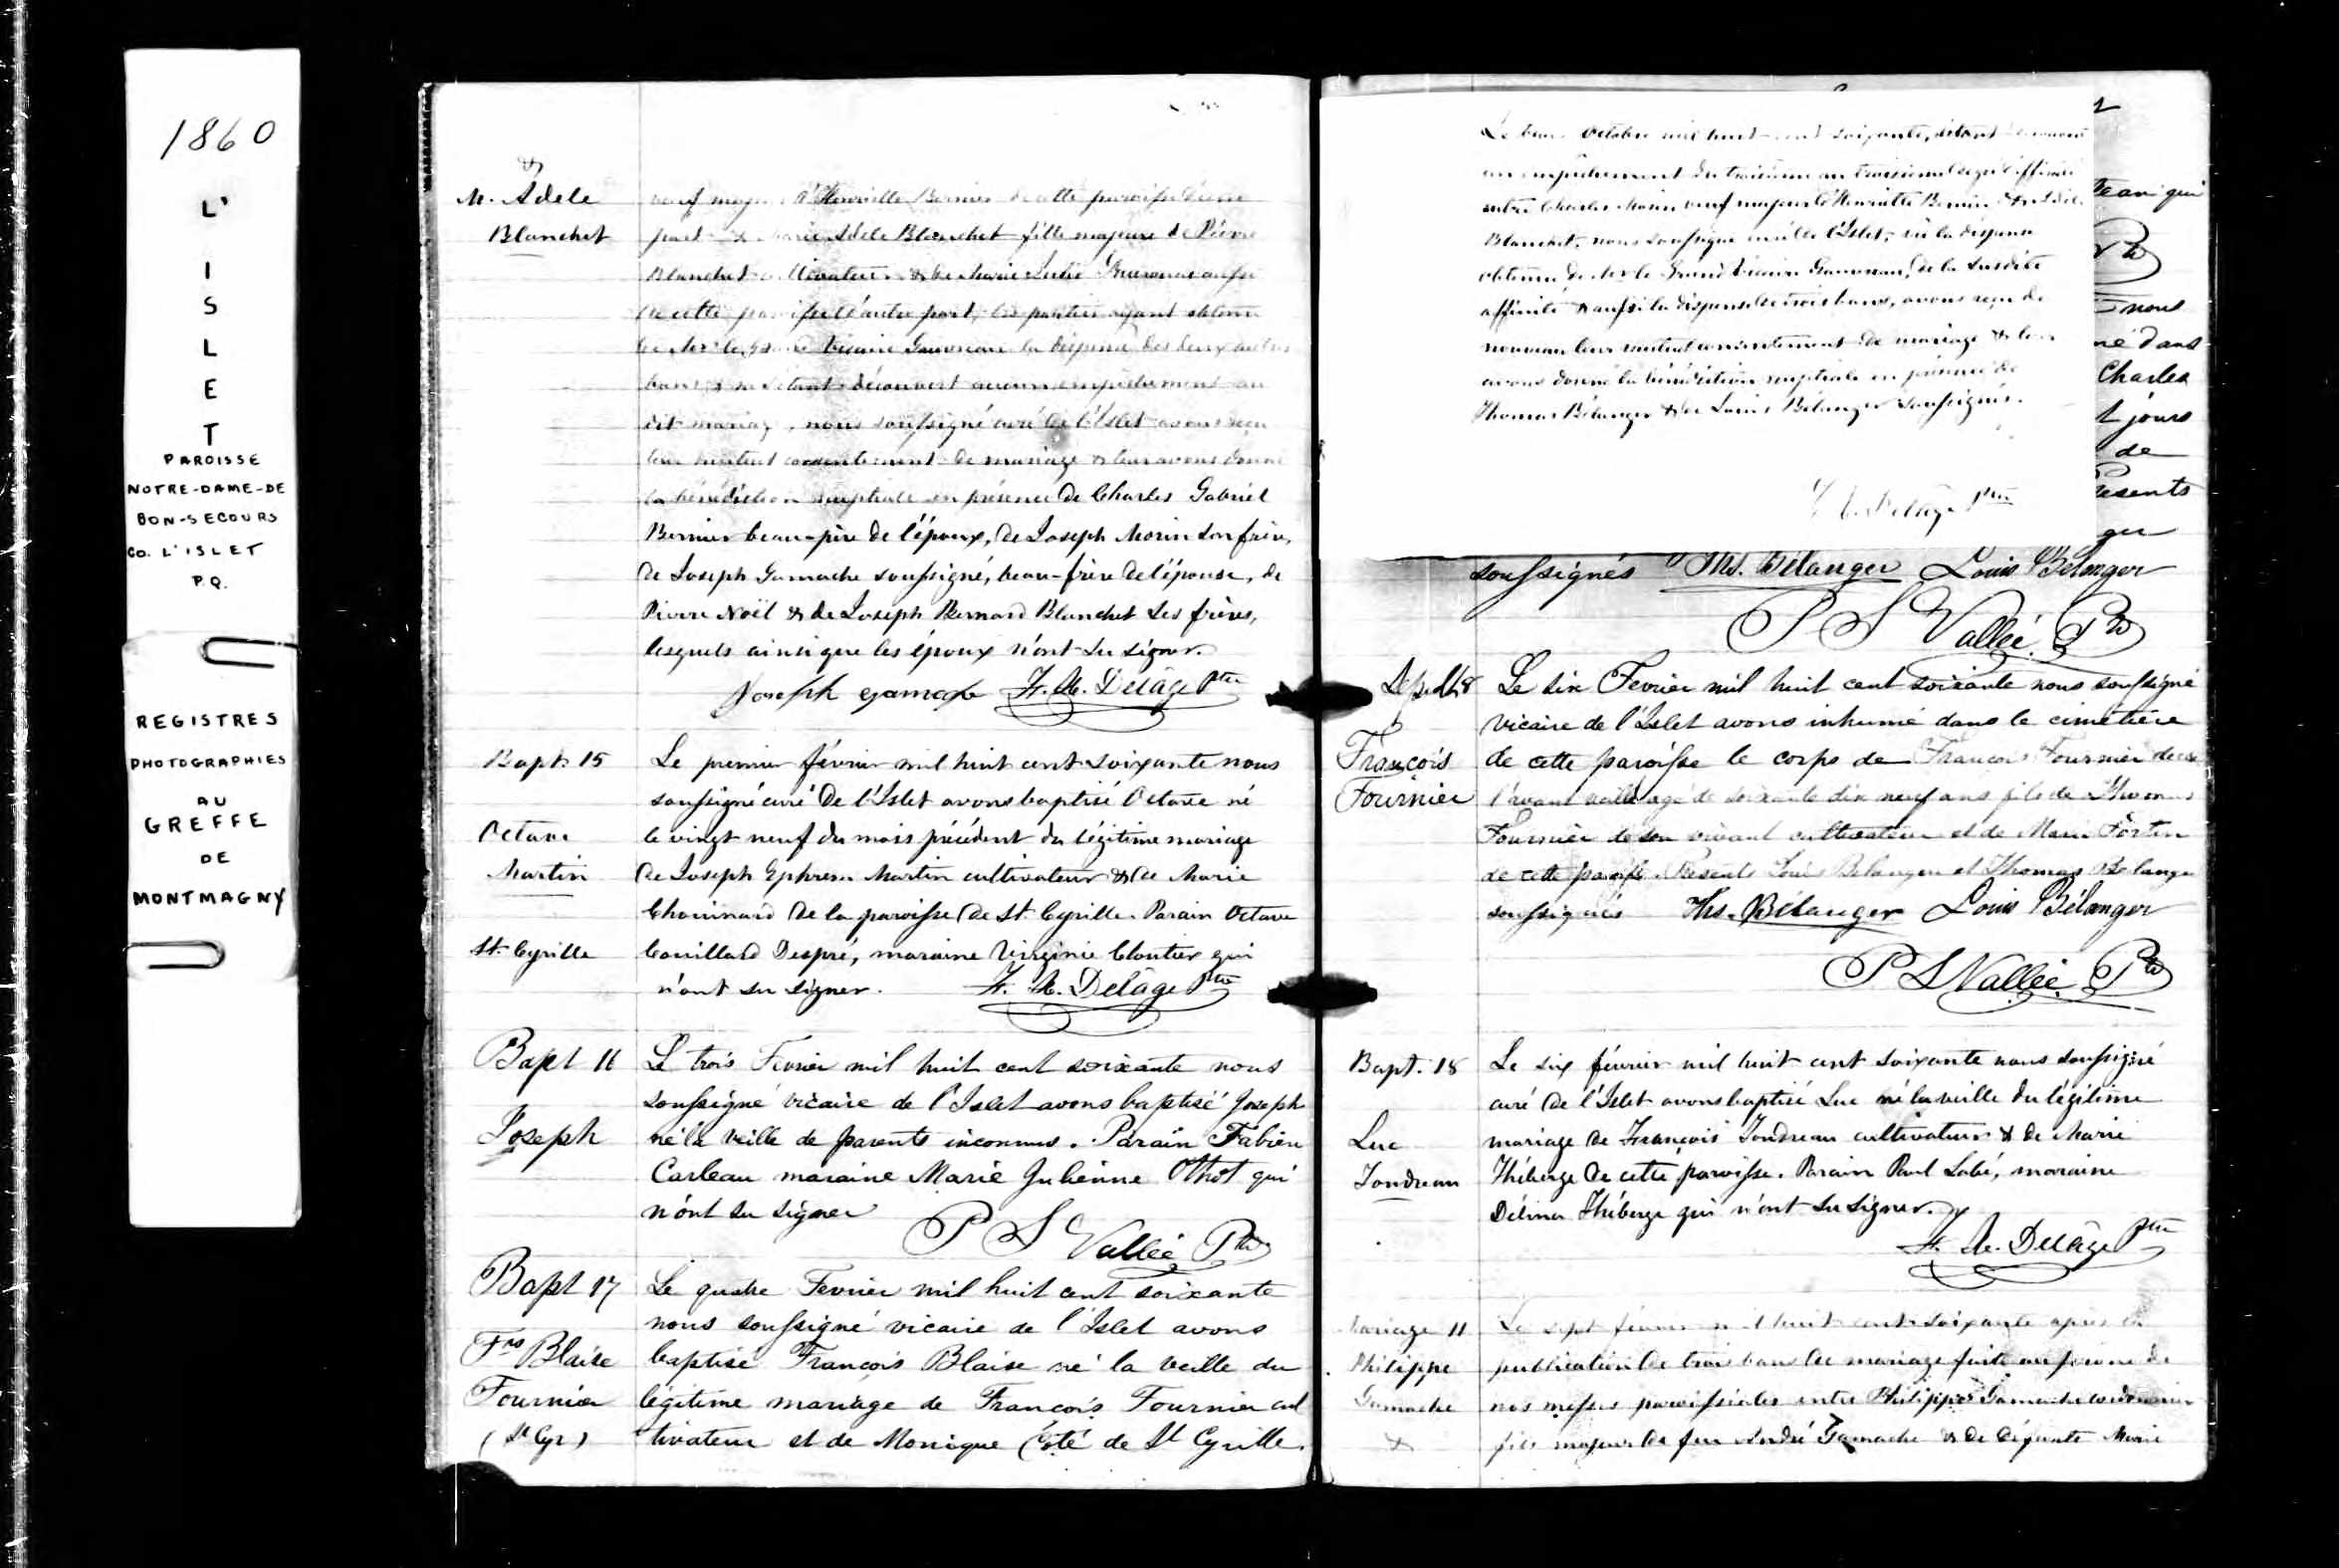 1860
L'
I
S
L
E
T
PAROISSE
NOTRE-DAME-DE
BON-SECOURS
CO. L'ISLET
P.Q.
REGISTRES
PHOTOGRAPHIES
AU
GREFFE
DE
MONTMAGNY
&
M. Adele
Blanchet
veuf majeur d'Henriette Bernier de cette paroisse d'une
part & Marie Adele Blanchet fille majeure de Pierre
Blanchet cultivateur & de Marie
de cette paroisse d'autre part, les parties ayant obtenu
de Mr le Grand Vicaire Gauvreau la dispense des deux autres
bans & ne s'étant découvert aucun empêchement au
dit mariage, nous soussigné curé de l'Islet avons reçu
leur mutuel consentement de mariage & leur avons donné
la bénédiction nuptiale en présence de Charles Gabriel
Bernier beau-père de l'époux, de Joseph Morin son frère,
de Joseph Gamache soussigné, beau-frère de l'épouse, de
Pierre Noël & de Joseph Bernard Blanchet ses frères,
lesquels ainsi que les époux n'ont su signer.
Joseph gamache F. X. Delâge Ptre
Bapt. 15
Octave
Martin
St. Cyrille
Le premier février mil huit cent soixante nous
soussigné curé de l'Islet avons baptisé Octave né
le vingt neuf du mois précédent du légitime mariage
de Joseph Ephrem Martin cultivateur & de Marie
Chouinard de la paroisse de St. Cyrille. Parain Octave
Couillard Despré, maraine Virginie Cloutier qui
n'ont su signer. F. X. Delâge Ptre
Bapt 16
Joseph
Le trois Fevrier mil huit cent soixante nous
soussigné vicaire de l'Islet avons baptisé Joseph
né la veille de parents inconnus. Parain Fabien
Carleau maraine Marie Julienne qui
n'ont su signer
P S Vallée Ptre
Bapt 17
Frs Blaise
Fournier
(St Cyr)
Le quatre Fevrier mil huit cent soixante
nous soussigné vicaire de l'Islet avons
baptisé François Blaise né la veille du
légitime mariage de François Fournier cul
tivateur et de Monique Côté de St Cyrille.
Le Octobre mil huit cent soixante, s'étant découvert
un empêchement du troisième au troisième degré d'affinité
entre Charles Morin veuf majeur d'Henriette Bernier & Adele
Blanchet, nous soussigné curé de l'Islet, vu la dispense
obtenue de Mr le Grand Vicaire Gauvreau, de la susdite
affinité & aussi la dispense de trois bans, avons reçu de
nouveau leur mutuel consentement de mariage & leur
avons donné la bénédiction nuptiale en présence de
Thomas Bélanger & de Louis Bélanger soussignés.
F. X. Delâge Ptre
qui
nous
né dans
Charles
jours
de
ger
soussignés Ths. Bélanger Louis Bélanger
P S Vallée Ptre
François
Fournier
Le six Fevrier mil huit cent soixante nous soussigné
vicaire de l'Islet avons inhumé dans le cimetière
de cette paroisse le corps de François Fournier décédé
l'avant veille agé de soixante dix neuf ans fils de Thomas
Fournier de son vivant cultivateur et de Marie Fortin
de cette paroisse. Présents Louis Belanger et Thomas Belanger
soussignés Ths. Bélanger Louis Bélanger
P S Vallée Ptre
Bapt. 18
Luc
Tondreau
Le six février mil huit cent soixante nous soussigné
curé de l'Islet avons baptisé Luc né la veille du légitime
mariage de François Tondreau cultivateur & de Marie
Théberge de cette paroisse. Parain Paul Labé, maraine
Délina Théberge qui n'ont su signer.
F. X. Delâge Ptre
Mariage 11
Philippe
Gamache
&
Le sept février mil huit cent soixante après la
publication de trois bans de mariage faite au prone de
nos messes paroissiales entre Philippe Gamache cordonnier
fils majeur de feu André Gamache & de défunte Marie